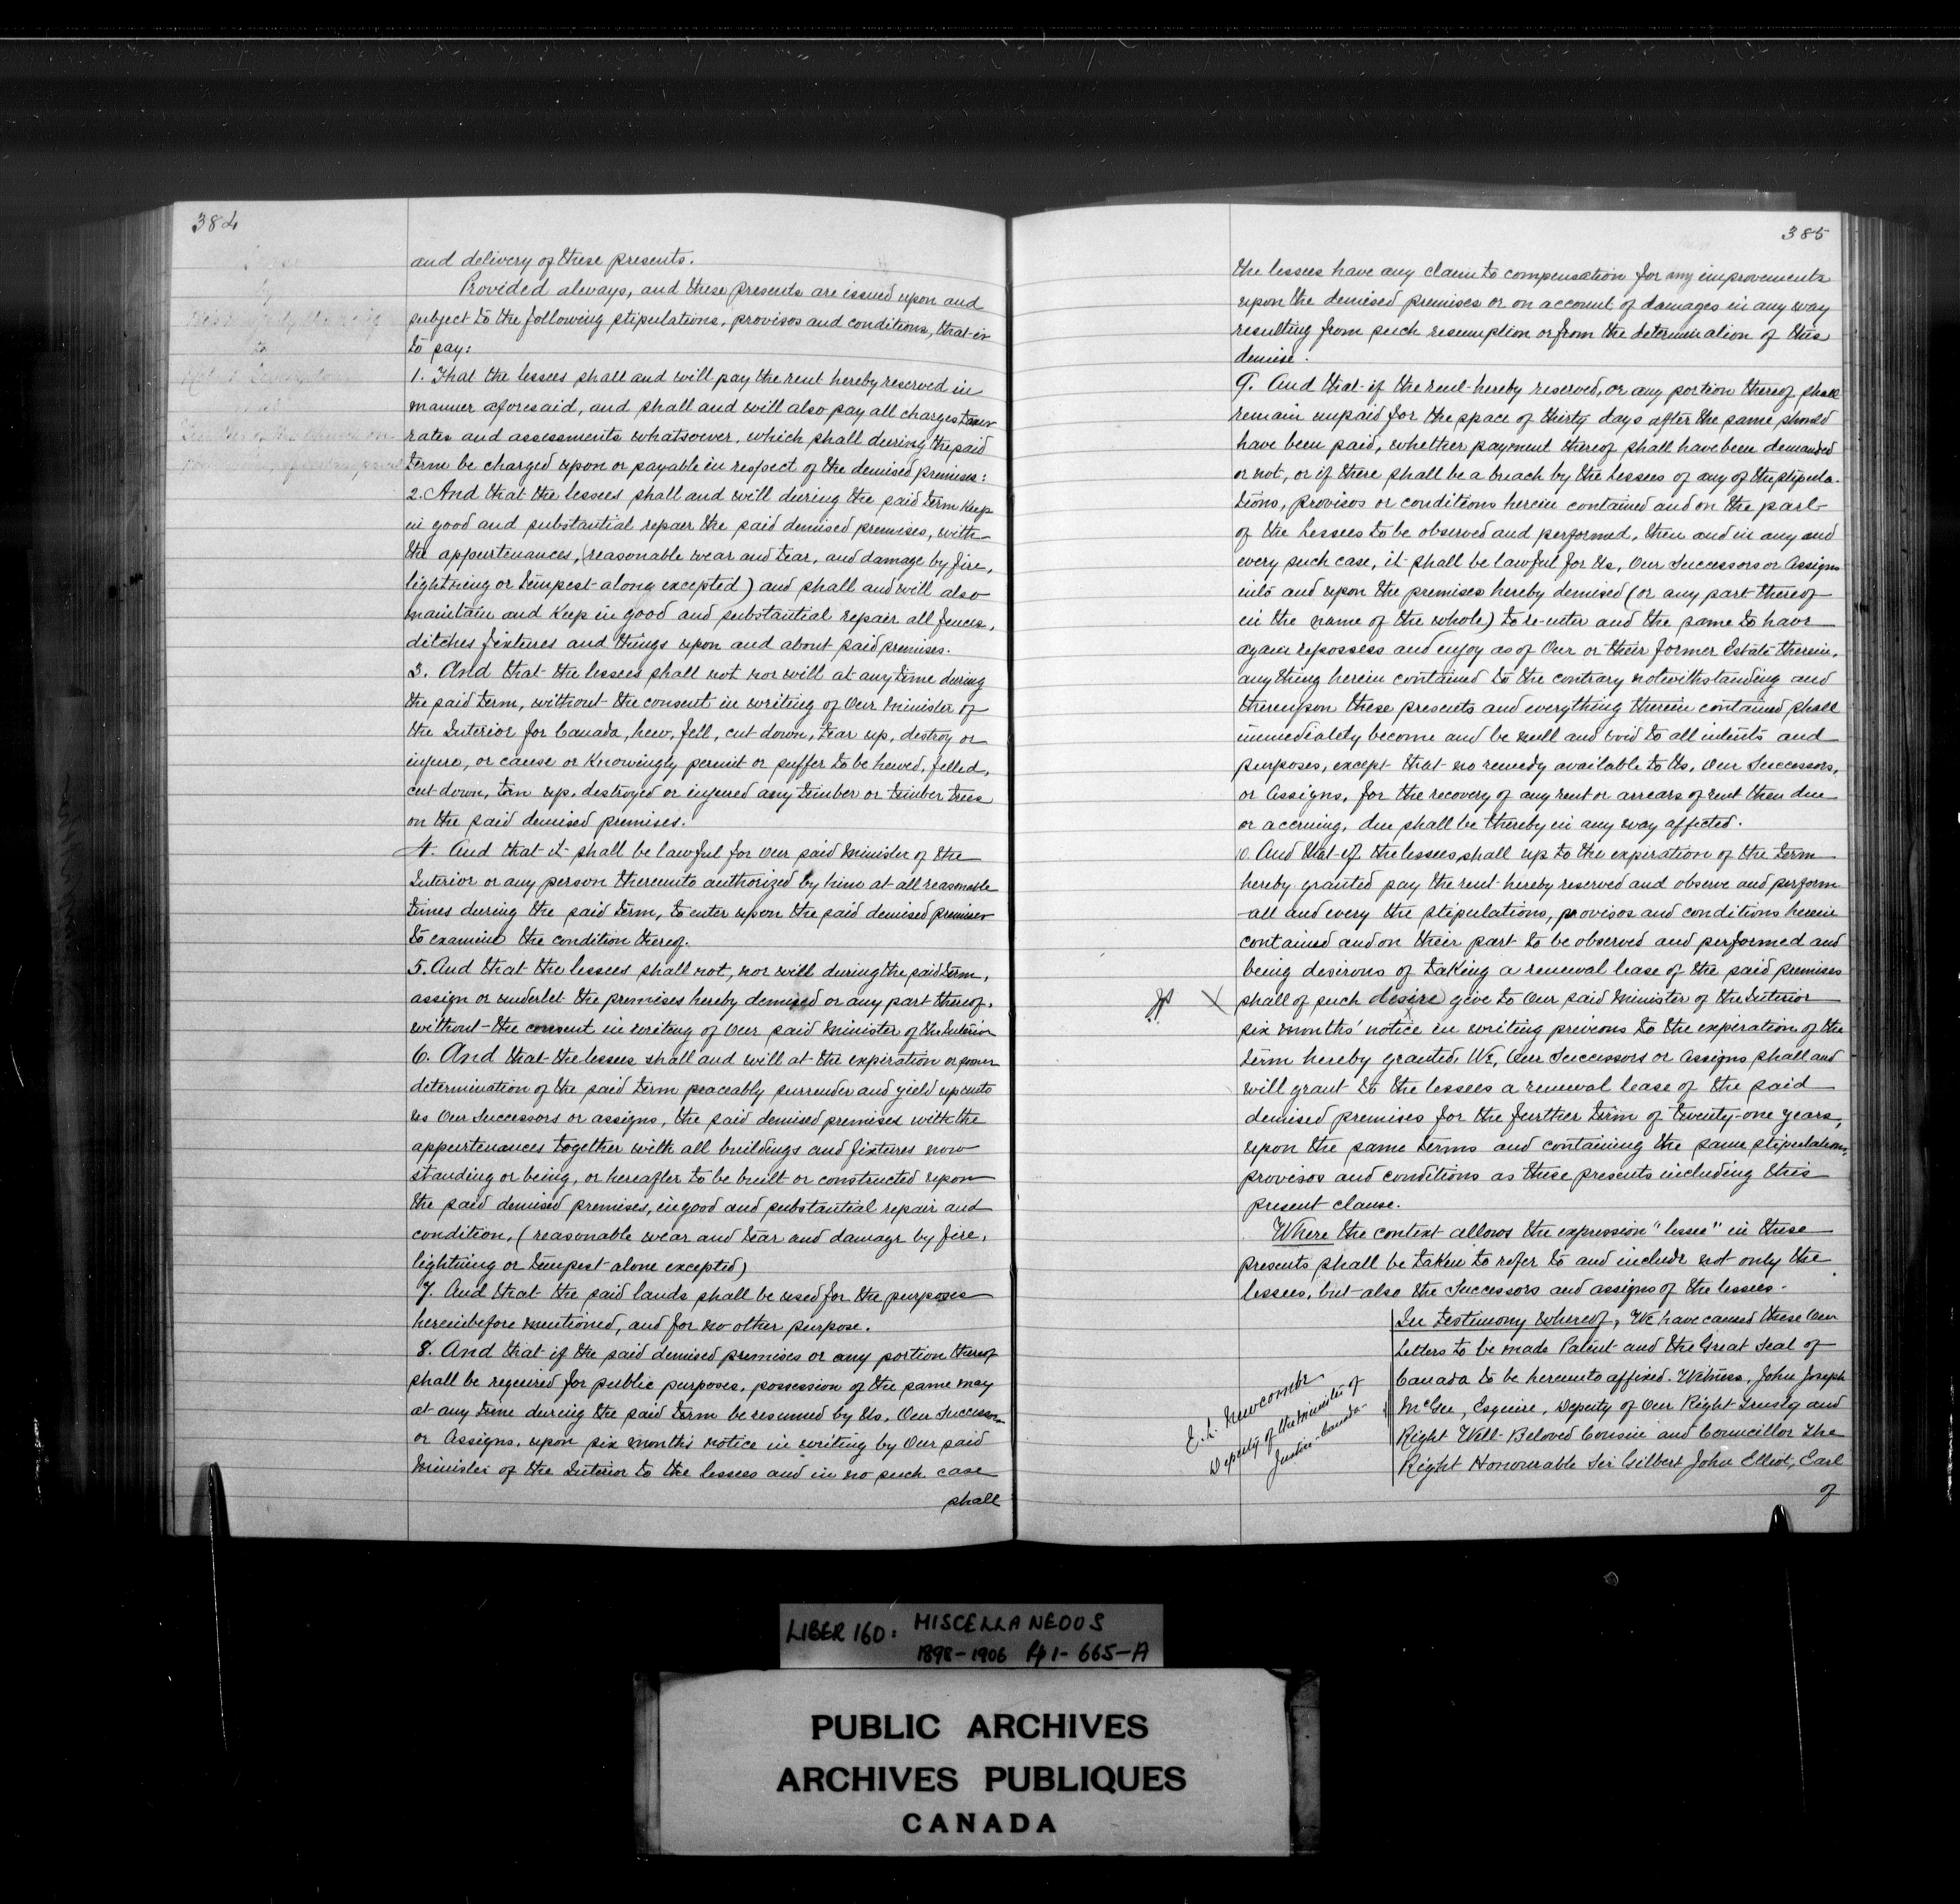 384
and delivery of these presents.
Provided always, and these presents are issued upon and
subject to the following stipulations, provisos and conditions, that is
to say:
1. That the lessees shall and will pay the rent hereby reserved in
manner aforesaid, and shall and will also pay all charges taxes
rates and assessments whatsoever, which shall during the said
term be charged upon or payable in respect of the demised premises:
2. And that the lessees shall and will during the said term keep
in good and substantial repair the said demised premises, with
the appurtenances, (reasonable wear and tear, and damage by fire,
lightning or tempest along excepted) and shall and will also
maintain and keep in good and substantial repair all fences,
ditches fixtures and things upon and about said premises.
3. And that the lessees shall not nor will at any time during
the said term, without the consent in writing of Our Minister of
the Interior for Canada, hew, fell, cut down, tear up, destroy or
injure, or cause or knowingly permit or suffer to be hewed, felled,
cut down, torn up, destroyed or injured any timber or timber trees
on the said demised premises.
4. And that it shall be lawful for Our said Minister of the
Interior or any person thereunto authorized by him at all reasonable
times during the said term, to enter upon the said demised premises
to examine the condition thereof.
5. And that the lessees shall not, nor will during the said term,
assign or underlet the premises hereby demised or any part thereof,
without the consent in writing of Our said Minister of the Interior
6. And that the lessees shall and will at the expiration or sooner
determination of the said term peaceably surrender and yield up unto
us Our Successors or assigns, the said demised premises with the
appurtenances together with all buildings and fixtures now
standing or being, or hereafter to be built or constructed upon
the said demised premises, in good and substantial repair and
condition, (reasonable wear and tear and damage by fire,
lightning or tempest alone excepted)
7. And that the said lands shall be used for the purposes
hereinbefore mentioned, and for no other purpose.
8. And that if the said demised premises or any portion thereof
shall be required for public purposes, possession of the same may
at any time during the said term be resumed by Us, Our Successors
or Assigns, upon six months notice in writing by Our said
Minister of the Interior to the lessees and in no such case
shall
385
the lessees have any claim to compensation for any improvements
upon the demised premises or on account of damages in any way
resulting from such resumption or from the determination of this
demise.
9. And that if the rent hereby reserved, or any portion thereof shall
remain unpaid for the space of thirty days after the same should
have been paid, whether payment thereof shall have been demanded
or not, or if there shall be a breach by the Lessees of any of the stipula-
tions, provisos or conditions herein contained and on the part
of the Lessees to be observed and performed, then and in any and
every such case, it shall be lawful for Us, Our Successors or Assigns
into and upon the premises hereby demised (or any part thereof
in the name of the whole) to re-enter and the same to have
again repossess and enjoy as of Our or their former Estate therein,
anything herein contained to the contrary notwithstanding and
thereupon these presents and everything therein contained shall
immediately become and be null and void to all intents and
purposes, except that no remedy available to Us, Our Successors,
or Assigns, for the recovery of any rent or arrears of rent then due
or accruing, due shall be thereby in any way affected.
10. And that if the lessees, shall up to the expiration of the term
hereby granted pay the rent hereby reserved and observe and perform
all and every the stipulations, provisos and conditions herein
contained and on their part to be observed and performed and
being desirous of taking a renewal lease of the said premises
X shall of such desire give to Our said Minister of the Interior
six months' notice in writing previous to the expiration of the
term hereby granted, We, Our Successors or Assigns shall and
will grant to the lessees a renewal lease of the said
demised premises for the further term of twenty-one years,
upon the same terms and containing the same stipulations,
provisos and conditions as these presents including this
present clause.
Where the context allows the expression "lessees" in these
presents shall be taken to refer to and include not only the
lessees, but also the Successors and assigns of the lessees.
In testimony whereof, We have caused these Our
Letters to be made Patent and the Great Seal of
Canada to be hereunto affixed. Witness, John Joseph
McGee, Esquire, Deputy of Our Right Trusty and
Right Well-Beloved Cousin and Councillor The
Right Honourable Sir Gilbert John Elliot, Earl
of
E. L. Newcombe
Deputy of the Minister of
Justice Canada
LIBER 160: MISCELLANEOUS
1898-1906 Pp 1-665-A
PUBLIC ARCHIVES
ARCHIVES PUBLIQUES
CANADA